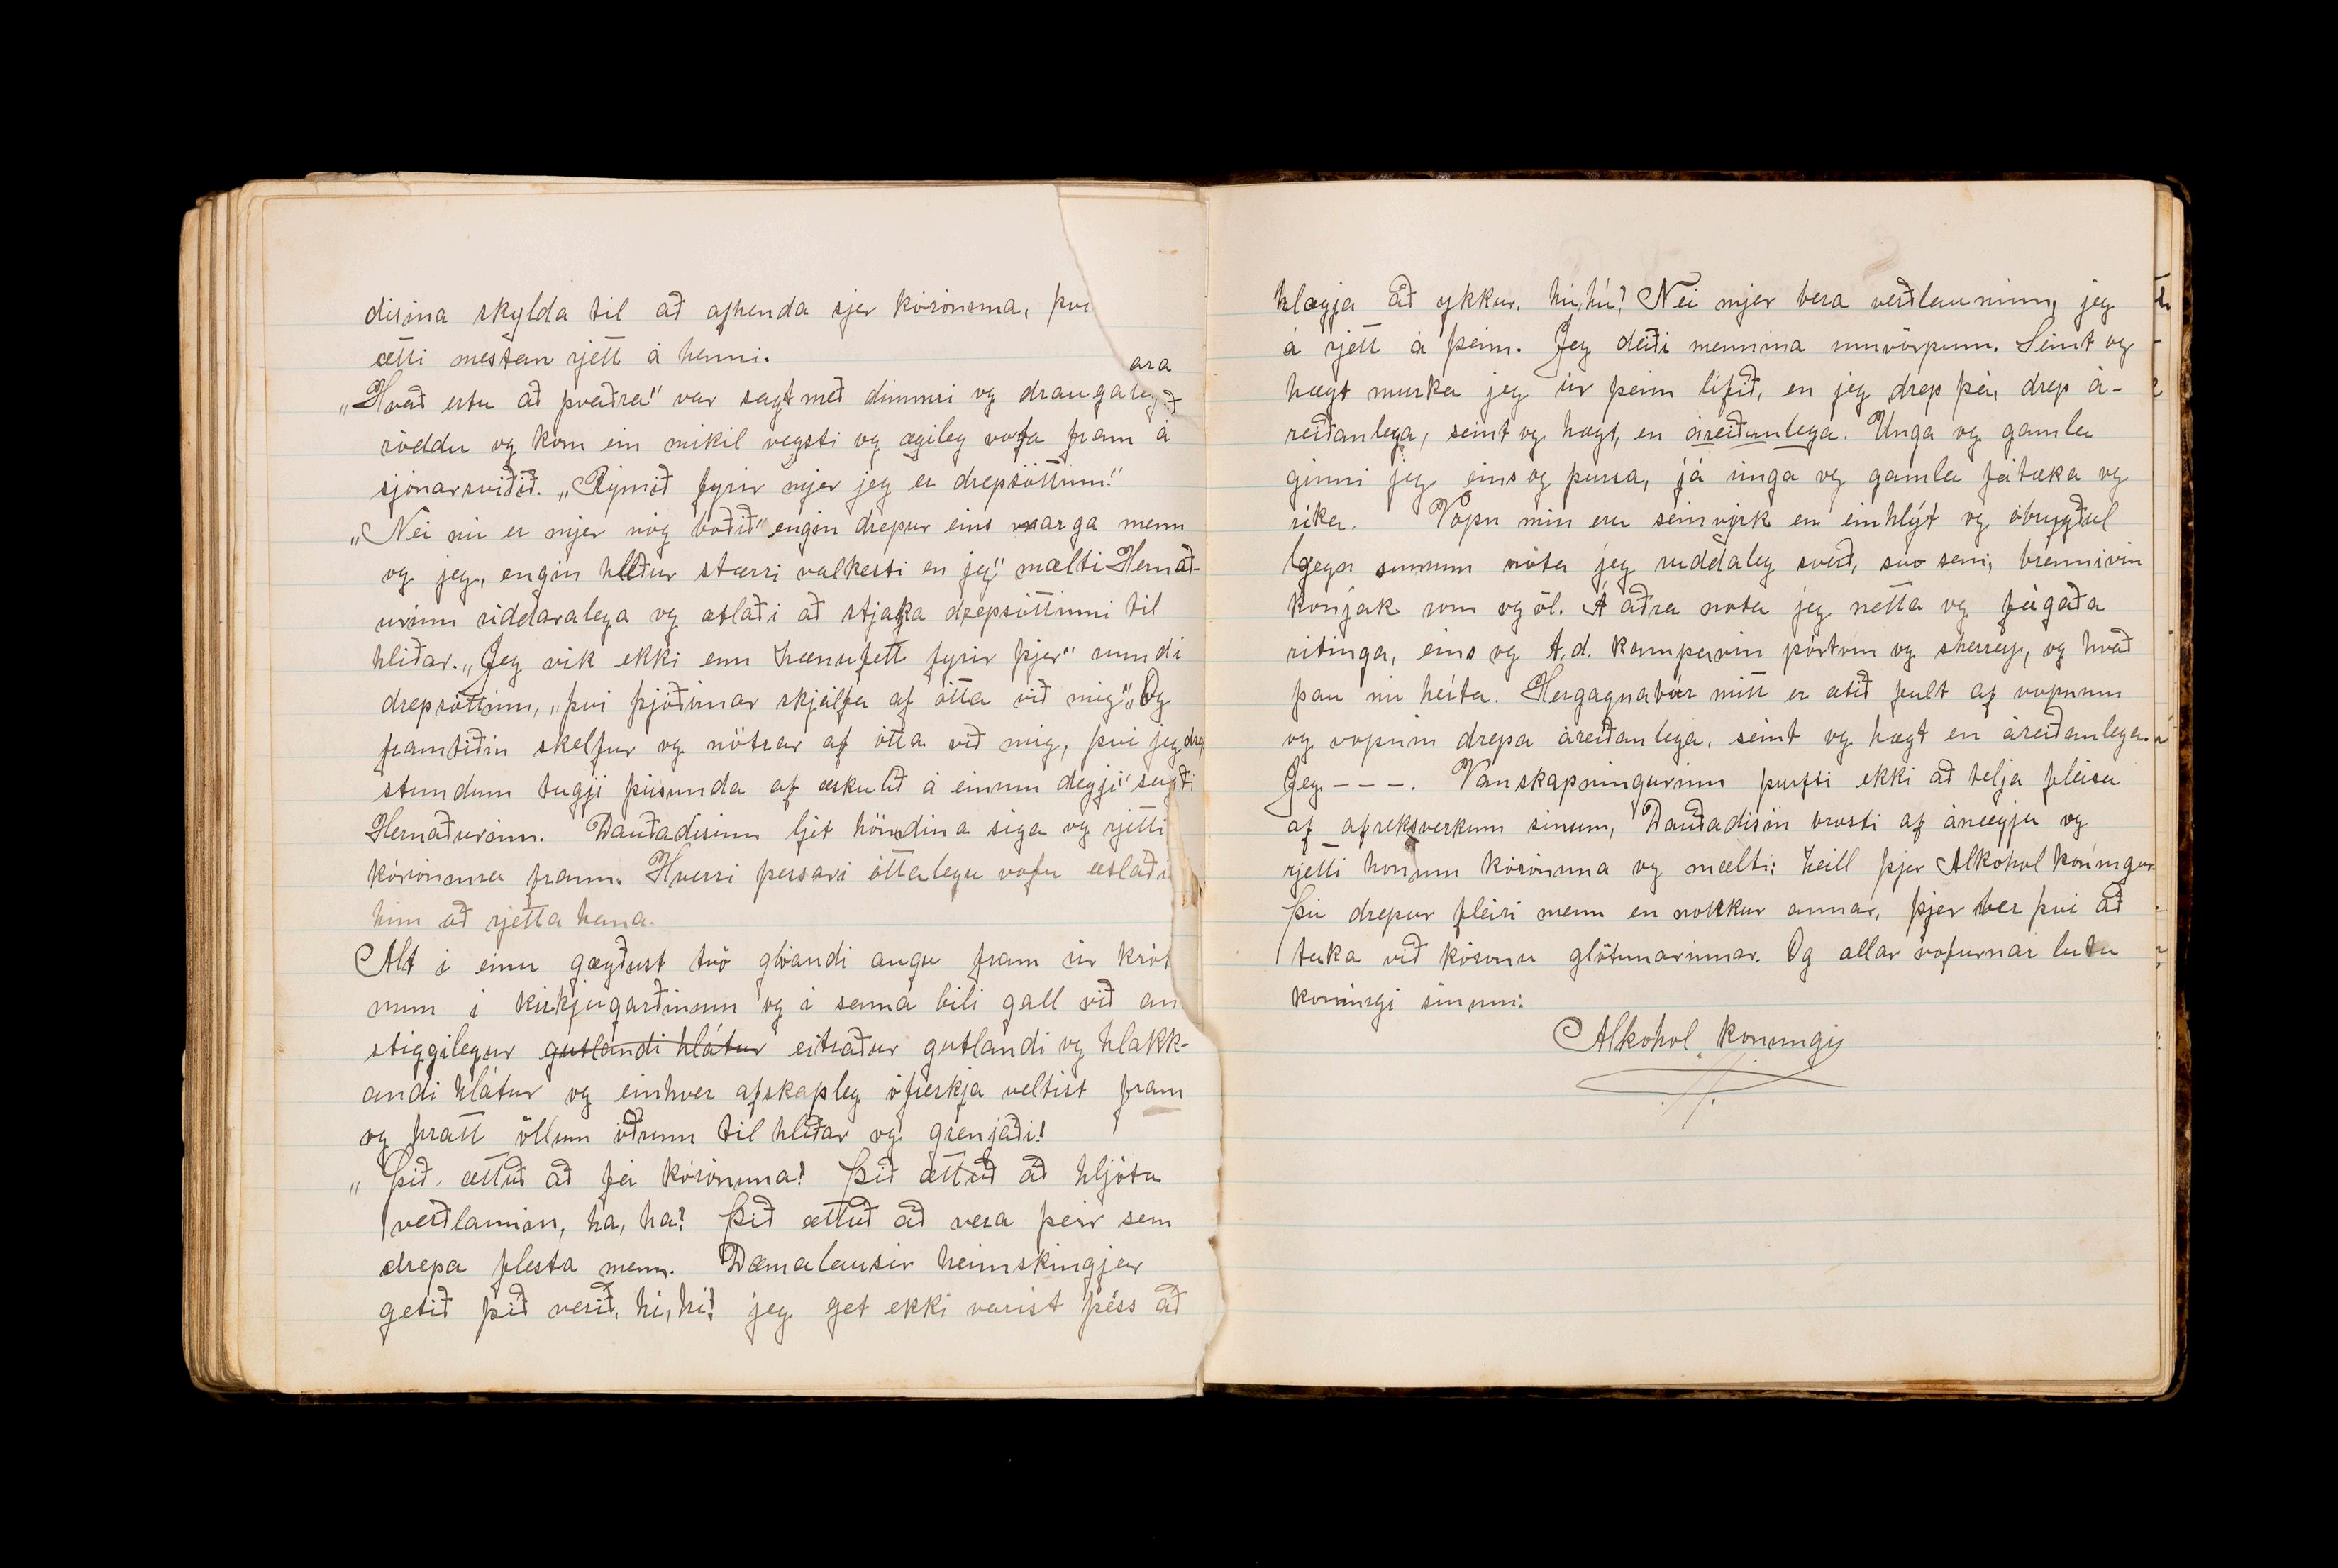 disina skylda til að afhenda sjer kórónuna, því
ætti mestan rjett á henni.
ara
„Hvað ertu að þvaðra" var sagt með dimmri og draugaleg
röddu og kom ein mikil vegsti og ægileg vofa fram á
sjónarsviðið. „Rýmið fyrir mjer jeg er drepsóttinn!"
„Nei nú er mjer nóg boðið" engin drepur eins marga menn
og jeg, engin hleður stærri valkesti en jeg," mælti Hernað-
urinn riddaralega og ætlaði að stjaka drepsóttinni til
hliðar. „Jeg vík ekki enn hænufett fyrir þjer" rumdi
drepsóttinn, „því þjóðirnar skjálfa af ótta við mig". „Og
framtíðin skelfur og nötrar af ótta við mig, því jeg drep
stundum tugji þúsunda af æskulið á einum degji" sagði
Hernaðurinn. Dauðadísinn ljet höndina síga og rjetti
kórónuna fram. Hverri þessari óttalegu vofu ætlaði
hún að rjetta hana.
Alt í einu gægðust tvö glóandi augu fram úr krót
num í kirkjugarðinum og í sama bili gall við an
stiggilegur gutlandi hlátur eitraður gutlandi og hlakk-
andi hlátur og einhver afskapleg ófreskja veltist fram
og hratt öllum öðrum til hliðar og grenjaði!
„Þið ættuð að fá kórónuna! Þið ættuð að hljóta
verðlaunin, ha, ha! Þið ættuð að vera þeir sem
drepa flesta menn. Dæmalausir heimskingjar
getið þið verið, hí, hí! jeg get ekki varist þéss að
hlægja að ykkur, hí, hí! Nei mjer bera verðlauninn, jeg
á rjett á þeim. Jeg deiði mennina unnvörpum. Seint og
hægt murka jeg úr þeim lífið, en jeg drep þá, drep á-
reiðanlega, seint og hægt, en áreiðanlega. Unga og gamla
ginni jeg eins og þussa, já unga og gamla fátæka og
ríka. Vopn mín eru seinvirk en einhlýt og óbrygðul
Gegn sumum nóta jeg ruddaleg sverð, svo sem, brennivín
konjak rom og öl. Á aðra nota jeg netta og fágaða
ritinga, eins og t.d. kampavín pórtvín og sherrey, og hvað
þau nú heita. Hergagnabúr mitt er ætið fult af vopnum
og vopnin drepa áreiðanlega, seint og hægt en áreiðanlega.
Jeg - - -. Vanskapningurinn þurfti ekki að telja fleira
af afreksverkum sínum, Dauðadísin brosti af ánægju og
rjetti honum kórónuna og mælti: heill þjer Alkohol konungur
Þú drepur fleiri menn en nokkur annar, þjer ber því að
taka við kórónu glötunarinnar. Og allar vofurnar lutu
konungi sínum:
Alkohol konungi